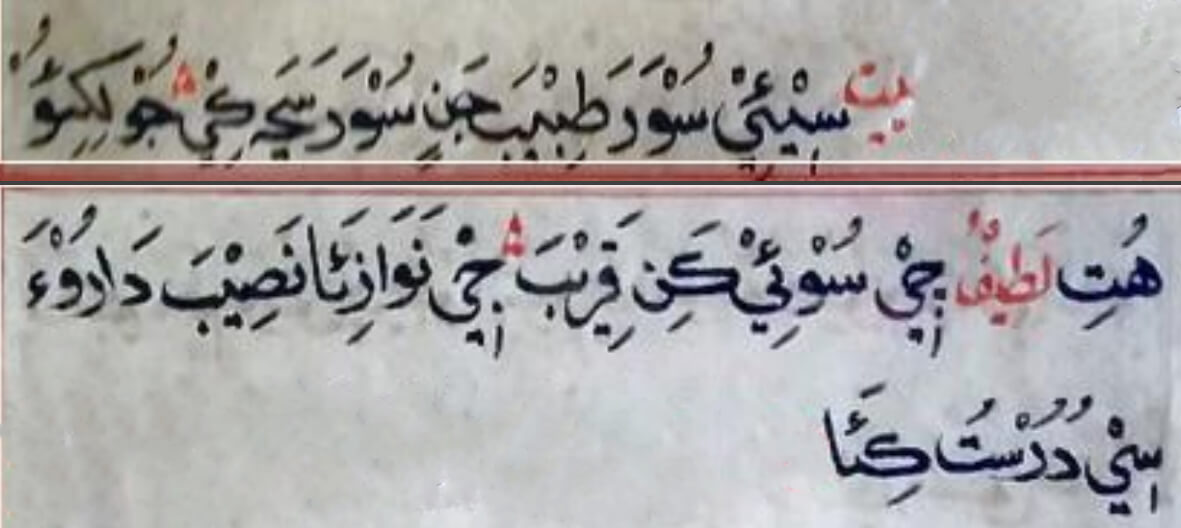 بيت سِيْئِيْ سُوْرَ طَبِيْبَ جَنِ سُوْرَ سَڃَہ کِيْ جُوْ لِکِئوُ
هُتِ لَطِيْفُ چِيْ سُوْئِيْ کَنِ قَرِيْبَ جِيْ نَوَازِئَا نَصِيْبَ دَارُوْءَ
سِيْ دُرُسْتُ کِئَا